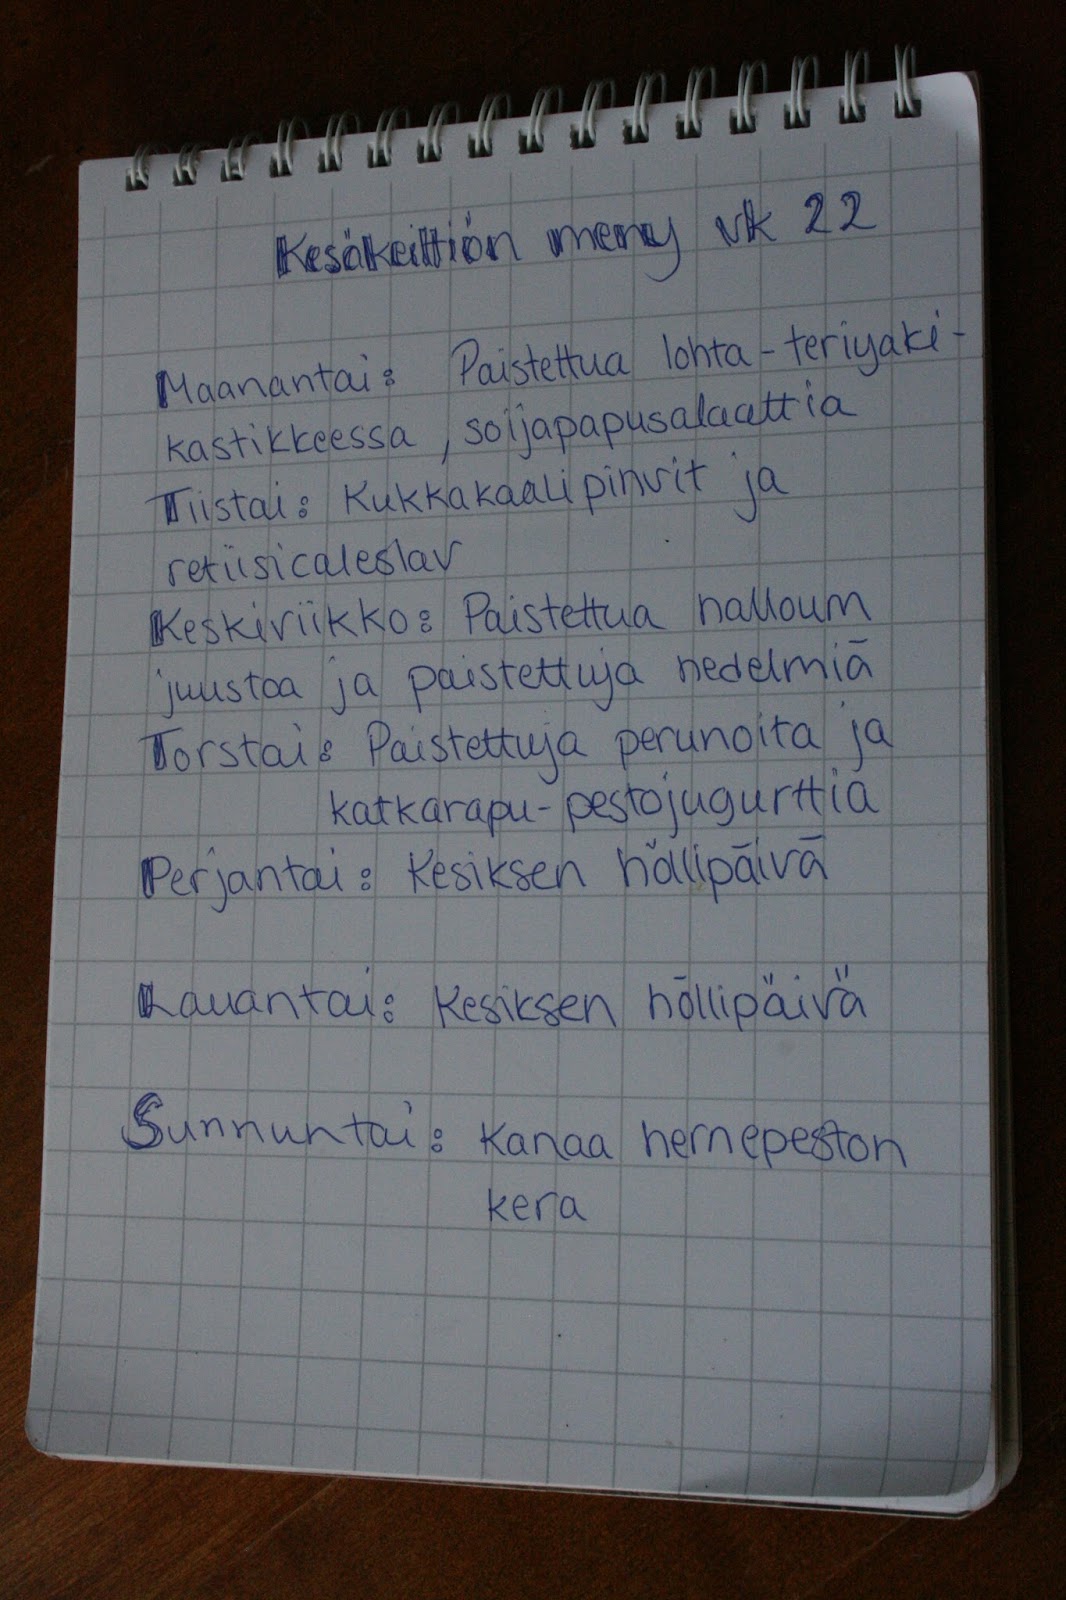 Kesäkeittiön meny vk 22
Maanantai: Paistettua lohta-teriyaki-
kastikkeessa, soijapapusalaattia
Tiistai: Kukkakaalipihvit ja
retiisicoleslav
Keskiviikko: Paistettua halloum
juustoa ja paistettuja hedelmiä
Torstai: Paistettuja perunoita ja
katkarapu-pestojugurttia
Perjantai: Kesiksen höllipäivä
Lauantai: Kesiksen höllipäivä
Sunnuntai: Kanaa hernepeston
kera